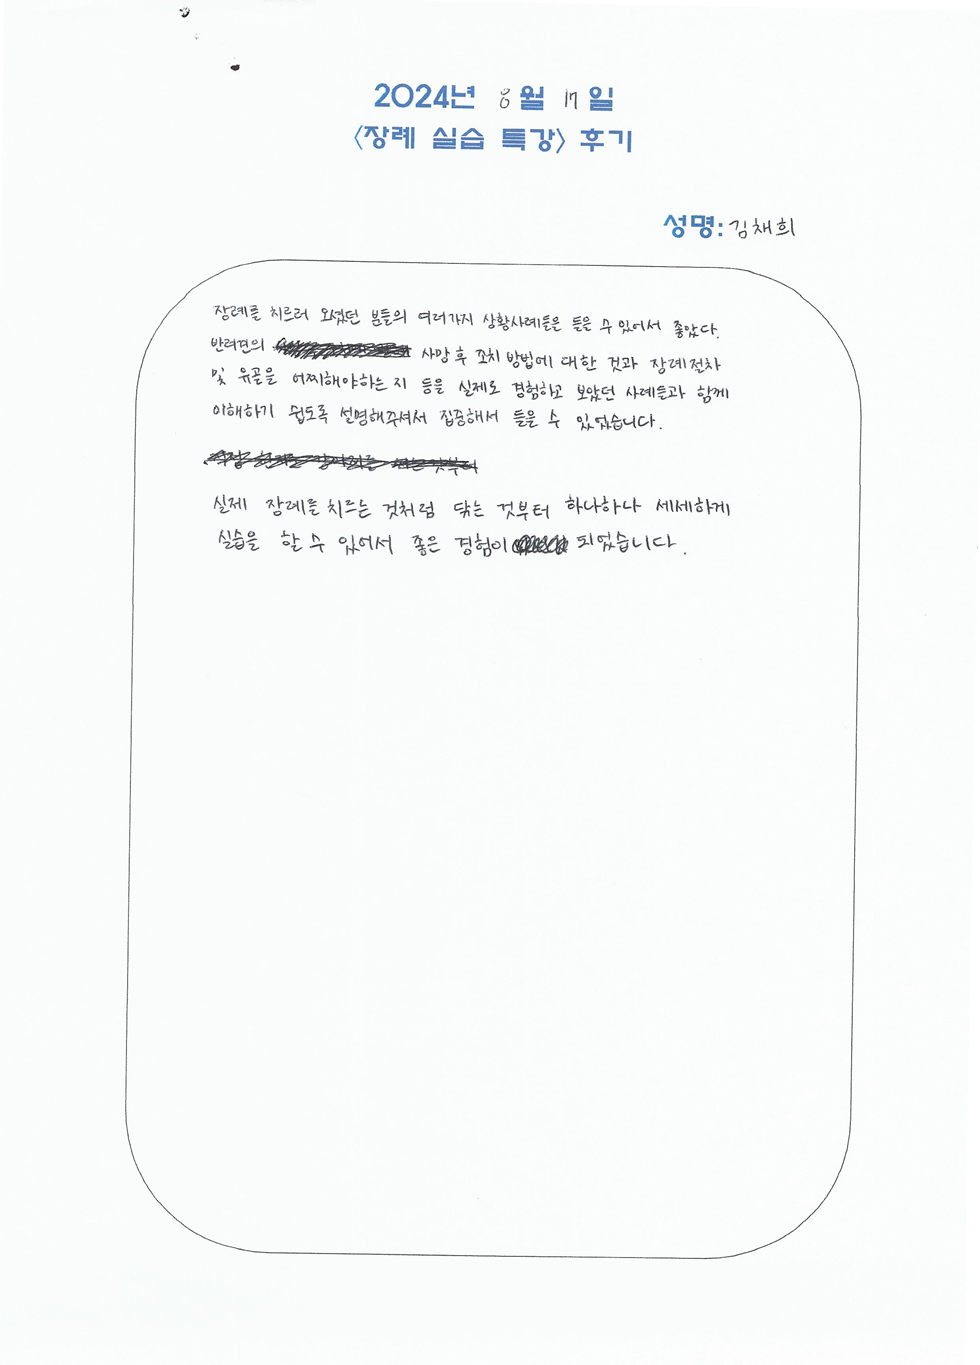 2024년 8월 17일
<장례 실습 특강> 후기
성명: 김채희
장례를 치르러 오셨던 분들의 여러가지 상황사례들은 들을 수 있어서 좋았다.
반려견의 사망 후 조치 방법에 대한 것과 장례절차
및 유골을 어찌해야하는 지 등을 실제로 경험하고 보았던 사례들과 함께
이해하기 쉽도록 설명해주셔서 집중해서 들을 수 있었습니다.
실제 장례를 치르는 것처럼 닦는 것부터 하나하나 세세하게
실습을 할 수 있어서 좋은 경험이 되었습니다.